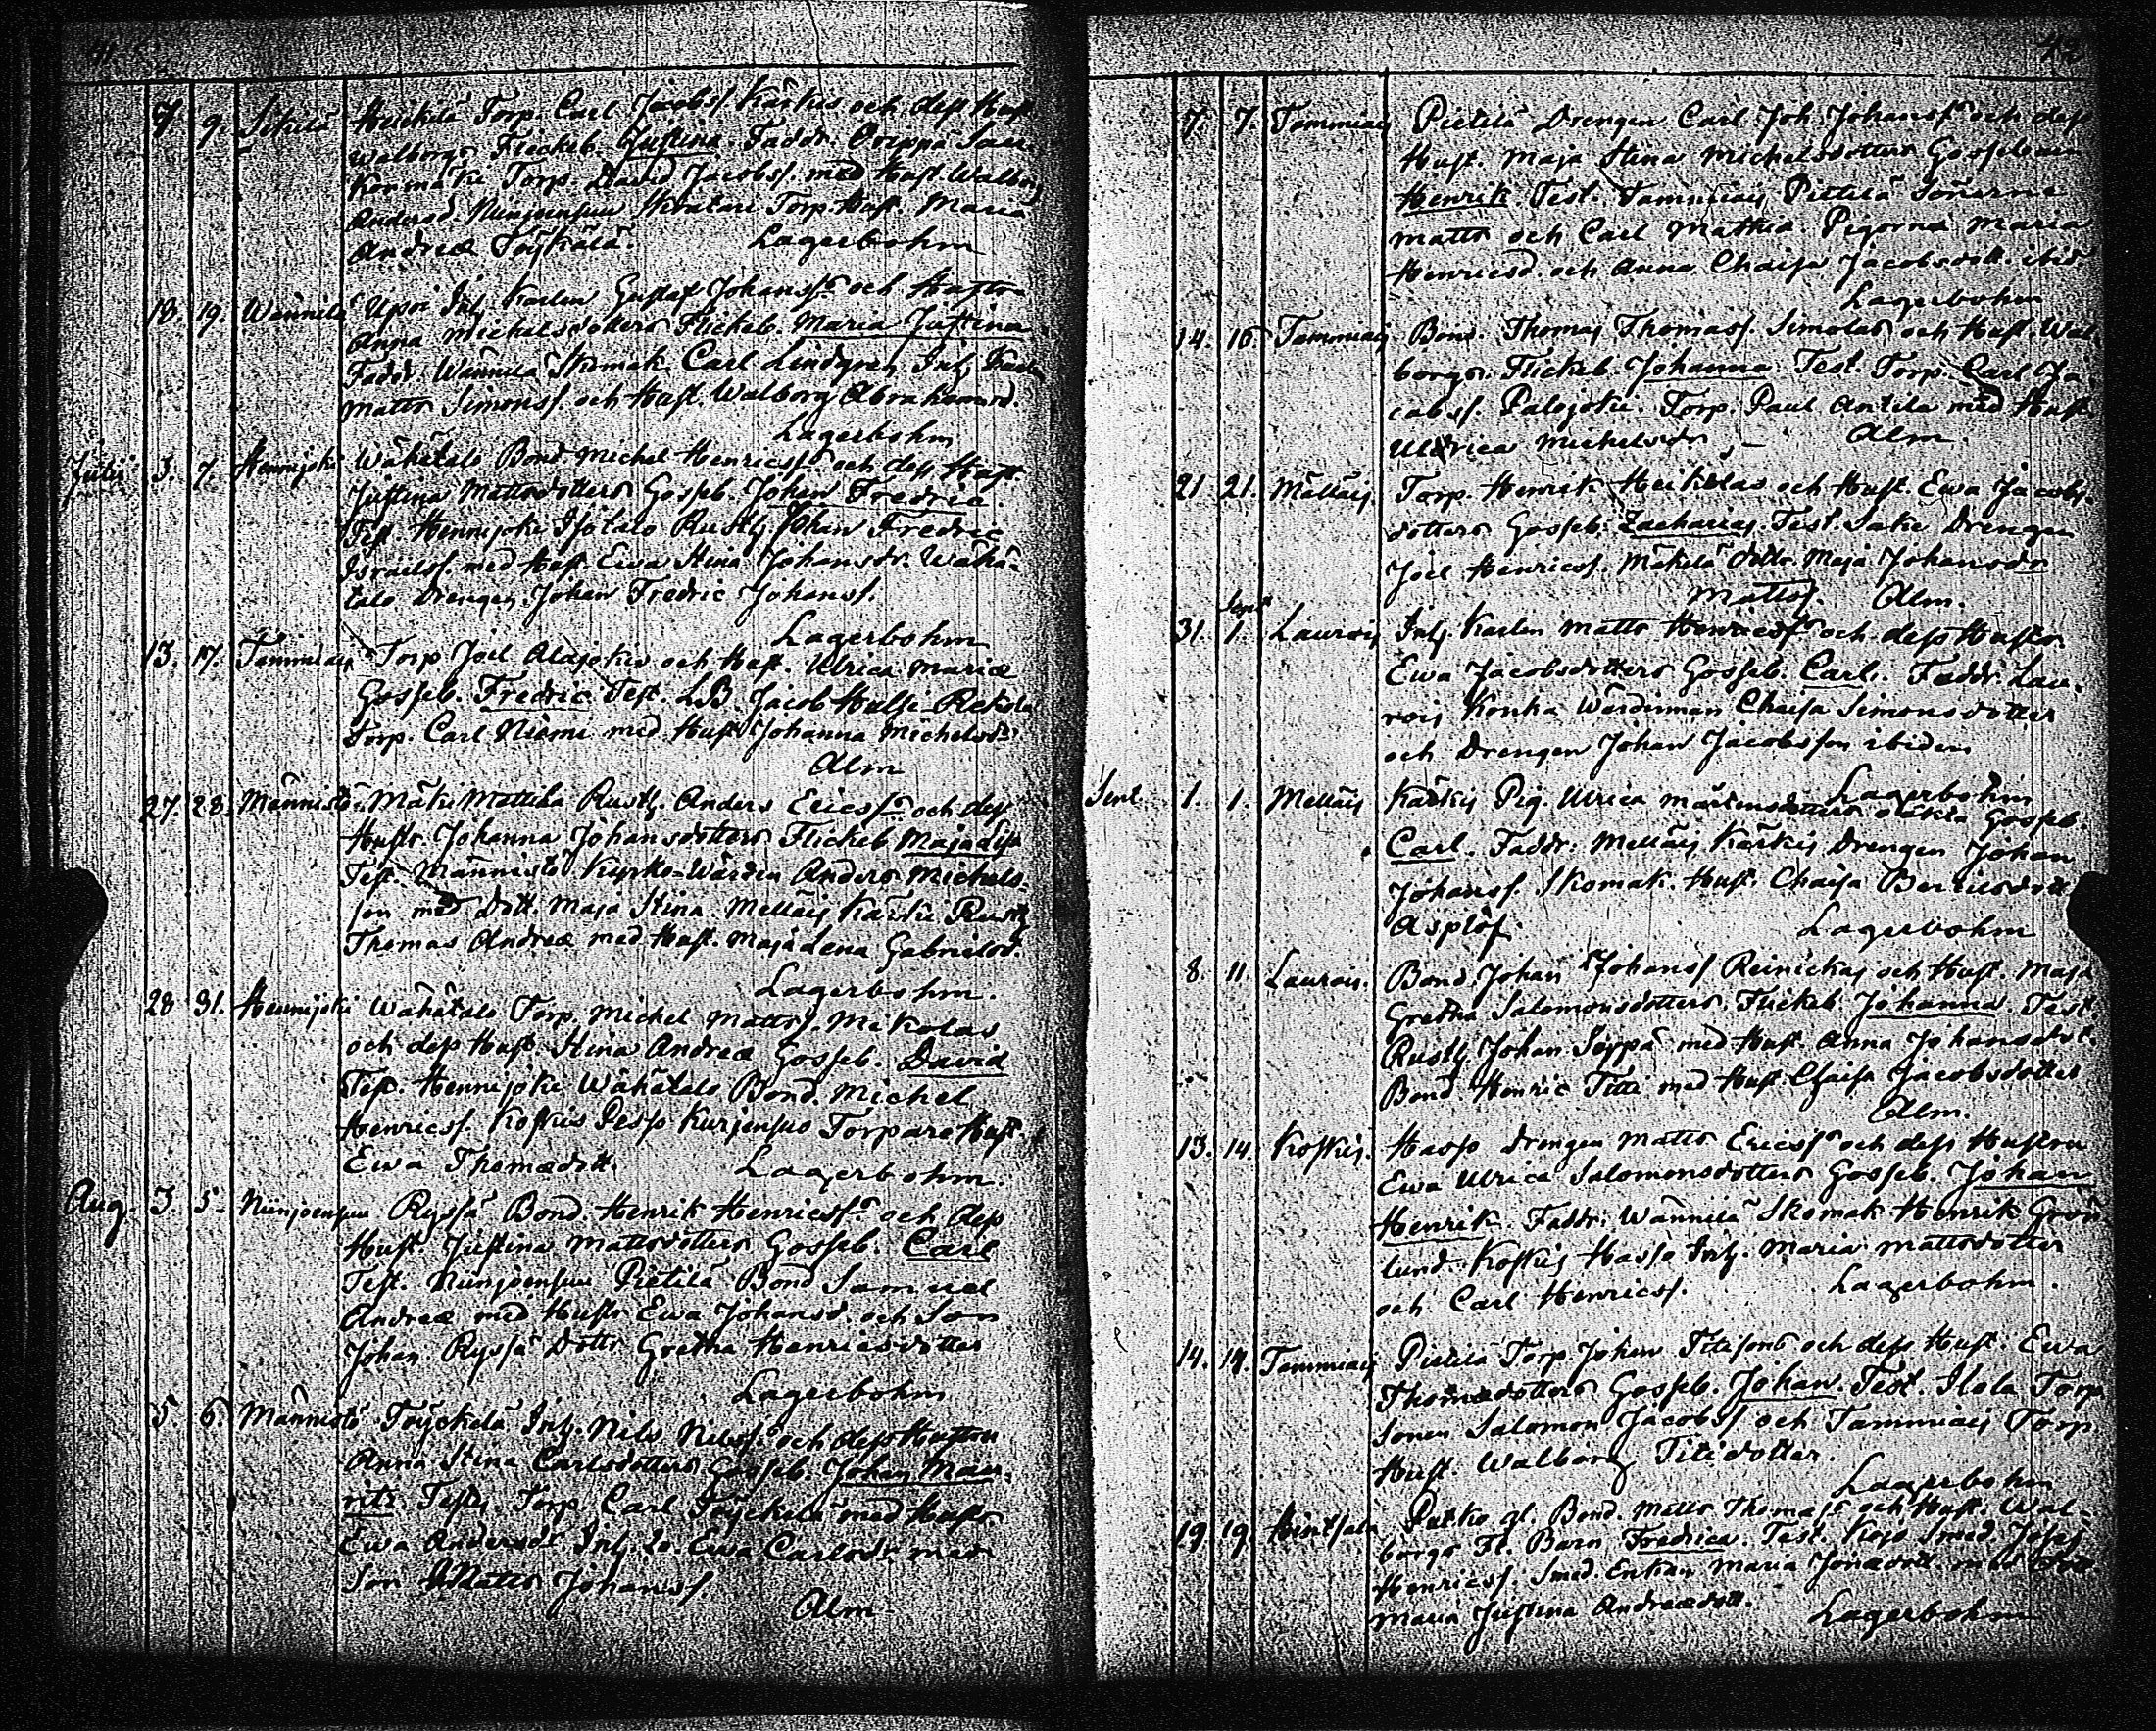 41
7. 9. Sikilä Heickilä Torp. Carl Jacobss. Kärkis och dess Hust.
Walborgs Flickeb. Justina. Faddr. Oripää Sau-
konmäki Torp. David Jacobss. med Hust. Walborg
Andersd. Niinjoensuu Torp. Hust. Maria
Andreæ Töykälä. Lagerbohm
18. 19. Wännilä Upoi Inh. Karlen Gustaf Johanss. och Hustro
Anna Michelsdotters Flickeb. Maria Justina
Faddr. Wännilä Skomak. Carl Lindgren, Inh. Karlen
Matts Simonss. och Hust. Walborg Abrahamsd.
Lagerbohm
Julii 3. 7. Hennijoki Wähätalo Bond. Michel Henricss. och dess Hust.
Justina Mattsdotters Gosseb. Johan Fredric.
Test. Hennijoki Isotalo Rusth. Johan Fredric
Israelss. med Hust. Ewa Stina Johansdr. Wähä-
talo Drengen Johan Fredric Johanss.
Lagerbohm
13. 17. Tammiais Torp. Joel Alajokis och Hust. Ulrica Mariæ
Gosseb. Fredric Test. L.B. Jacob Hulsi Rekola
Torp. Carl Niemi med Hust. Johanna Michelsdr
Alm
27. 28. Männistö Mäki Mattila Rusth. Anders Ericss. och dess
Hustr. Johanna Johansdotters Flickeb. Maja Lisa
Test. Männistö Kyrko-Wärden Anders Michels-
son med Dott. Maja Stina. Melläis Kärki Rusth.
Thomas Andreæ med Hust. Maja Lena Gabrielsd.
Lagerbohm.
28 31. Hennijoki Wähätalo Torp. Michel Mattss. Mikolas
och dess Hust. Stina Andreæ Gosseb. David
Test. Hennijoki Wähätalo Bond. Michel
Henricss. Koskis Pesso Kurjensuo Torpare Hust.
Ewa Thomædott. Lagerbohm.
Aug. 3. 5. Niinjoensuu Ryssä Bond. Henrik Henricss. och dess
Hust. Justina Mattsdotters Gosseb. Carl
Test. Niinjoensuu Pietilä Bond Samuel
Andreæ med Hustr. Ewa Johansd. och Son
Johan. Ryssä Dottr Gretha Henricsdotter
Lagerbohm
5. 6. Männistö Töyckälä Inh. Nils Nilss. och dess Hustru
Anna Stina Carlsdotters Gosseb. Johan Mau-
ritz. Test. Torp. Carl Töyckälä med Hustr.
Ewa Andersdr. Inh. Ewa Carlsdr. med
Son Matts Johanss.
Alm
42
7. 7. Tammiais Pietilä Drengen Carl Joh. Johanss. och dess
Hust. Maja Stina Michelsdotters Gossebarn
Henrik. Test. Tammiais Pietilä Sönerne
Matts och Carl Mathiæ. Pigorna Maria
Henricsd. och Anna Chaisa Jacobsdott. ibid
Lagerbohm
14. 16 Tammiais Bond. Thomas Thomass. Simolas och Hust. Wal-
borgs Flickeb. Johanna. Test. Torp. Carl Ja-
cobss. Palojoki. Torp. Paul Antila med Hust.
Ulrica Michelsdr. Alm.
21 21. Mälläis. Torp. Henrik Heikilas och Hust. Ewa Jacobs-
dotters Gosseb. Zacharias. Test. Drengen
Joel Henricss. Mäkelä dottr. Maja Johansdr
Mattss. Alm.
31. Sept 1. Laurois Inh. Karlen Matts Henricss. och dess Hustrs.
Ewa Jacobsdotters Gosseb. Carl. Faddr. Lau-
rois Konka Wärdinnan Chaisa Simonsdotter
och Drengen Johan Jacobsson ibidem
Lagerbohm
Sept. 1. 1. Melläis Kärkis Pig. Ulrica Mårtensdotters oäkta Gosseb.
Carl. Faddr: Melläis Kärkis Drengen Johan
Johanss. Skomak. Hust. Chaisa
Asplöf. Lagerbohm
8. 11. Laurois. Bond. Johan Johanss Reinickas och Hust. Maja
Gretha Salomonsdotters Flickeb. Johanna. Test.
Rusth. Johan Seppä med Hust. Anna Johansdot.
Bond. Henric Titti med Hust. Chaisa Jacobsdotter
Alm.
13. 14. Koskis. Hasso Drengen Matts Ericss. och dess Hustru
Ewa Ulrica Salomonsdotters Gosseb. Johan
Henrik. Faddr: Wännilä Skomak. Henrik Grön-
lund. Koskis Hasso Inh. Maria Mattsdotter
och Carl Henricss. Lagerbohm.
14. 14. Tammiais Pietilä Torp. Johan Titisons och dess Hust. Ewa
Thomædotters Gosseb. Johan. Test. Ilola Torp.
Sonen Salomon Jacobss. och Tammiais Torp
Hust. Walborg Titidotter.
Lagerbohm
19. 19. Hintsala Putko gl. Bond. Matts Thomass. och Hust. Wal-
borgs Fl. Barn Fredrica. Test. Smed Josas
Henricss. Smed Enkan Maria Jonædott
Maria Justina Andreædott. Lagerbohm